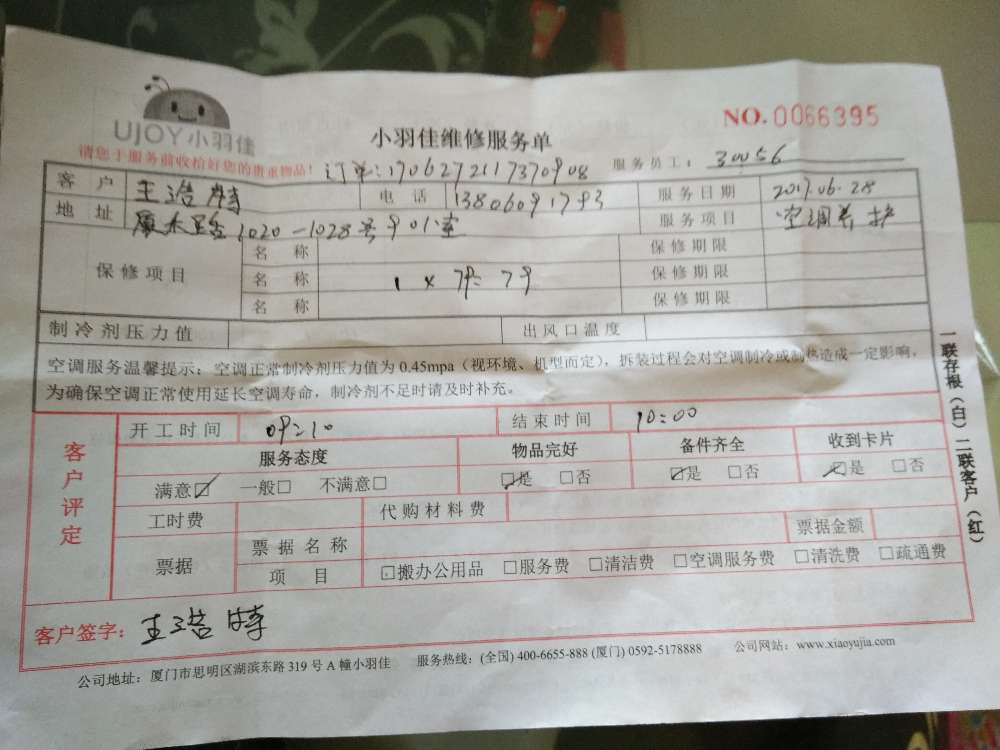 UJOY小羽佳
NO.0066395
小羽佳维修服务单
请您于服务前收拾好您的贵重物品!
订单:1706272117370908 服务员工: 30056
客户 王浩特 电话 13806091793 服务日期 2017.06.28
地址 1020-1028号901室 服务项目 空调养护
保修项目 名称 保修期限
名称 1 x 79= 79 保修期限
名称 保修期限
制冷剂压力值 出风口温度
空调服务温馨提示:空调正常制冷剂压力值为 0.45mpa(视环境、机型而定),拆装过程会对空调制冷或制热造成一定影响,
为确保空调正常使用延长空调寿命,制冷剂不足时请及时补充。
客户评定
开工时间 09:10 结束时间 10:00
服务态度 物品完好 备件齐全 收到卡片
满意☑ 一般□ 不满意□ ☑是 □否 ☑是 □否 ☑是 □否
工时费 代购材料费
票据 票据名称 票据金额
项目 □搬办公用品 □服务费 □清洁费 □空调服务费 □清洗费 □疏通费
客户签字: 王浩特
公司地址:厦门市思明区湖滨东路 319 号 A 幢小羽佳 服务热线:(全国) 400-6655-888 (厦门) 0592-5178888 公司网站:www.xiaoyujia.com
一联存根(白)二联客户(红)